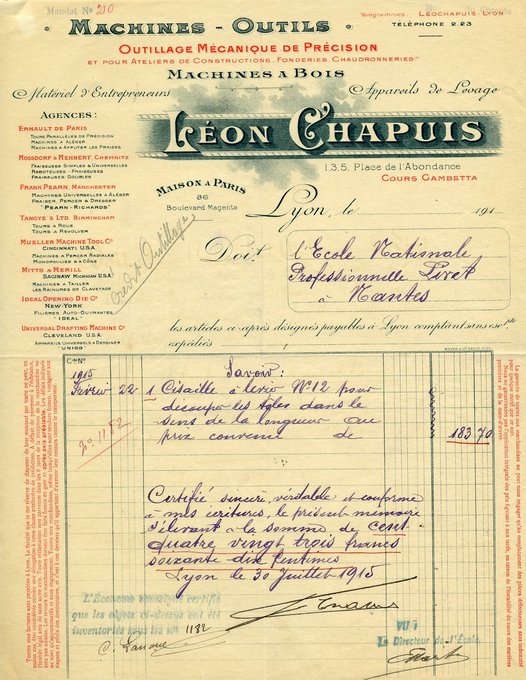 Mandat № 210
MACHINES - OUTILS
Télégrammes: LÉOCHAPUIS LYON
TÉLÉPHONE 2.23
OUTILLAGE MÉCANIQUE DE PRÉCISION
ET POUR ATELIERS DE CONSTRUCTIONS, FONDERIES CHAUDRONNERIES
MACHINES A BOIS
Matériel d'Entrepreneurs
Appareils de Levage
AGENCES:
LÉON CHAPUIS
ERNAULT DE PARIS
TOURS PARALLÈLES DE PRÉCISION
MACHINES A ALÉSER
MACHINES A AFFUTER LES FRAISES
MOSSDORF & MEHNERT, CHEMNITZ
FRAISEUSES SIMPLES & UNIVERSELLES
RABOTEUSES - FRAISEUSES
FRAISEUSES DOUBLES
FRANK PEARN, MANCHESTER
MACHINES UNIVERSELLES A ALÉSER
FRAISER, PERCER & DRESSER
"PEARN-RICHARDS"
TANGYE'S LTD BIRMINGHAM
TOURS A ROUE
TOURS A REVOLVER
MUELLER MACHINE TOOL Co
CINCINNATI U.S.A.
MACHINES A PERCER RADIALES
MONOPOULIE & A CÔNE
MITTS & MERILL
SAGINAW MICHIGAN U.S.A.
MACHINES A TAILLER
LES RAINURES DE CLAVETAGE
IDEAL OPENING DIE Co
NEW-YORK
FILIÈRES AUTO-OUVRANTES
"IDEAL"
UNIVERSAL DRAFTING MACHINE Co
CLEVELAND U.S.A.
APPAREILS UNIVERSELS A DESSINER
"UNICO"
1.3.5. Place de l'Abondance
COURS GAMBETTA
MAISON A PARIS
86
Boulevard Magenta
Lyon, le 191
Crédit Outillage
Doit
l'Ecole Nationale
Professionnelle Livet
à
Nantes
les articles ci-après désignés payables à Lyon comptant sans escpte
expédiés
Cde No
Savoir:
1915
Février 22 1 Cisaille à levier No 12 pour
découper les tôles dans le
sens de la longueur au
prix convenu de 183 70
No 1182
Certifié sincère, véritable et conforme
à mes écritures, le présent mémoire
s'élevant à la somme de cent-
quatre vingt trois francs
soixante dix centimes
Lyon le 30 Juillet 1915
L'Econome soussigné certifie
que les objets ci-dessus ont été
inventoriés sous les Nos 1182
VU :
Le Directeur de l'École,